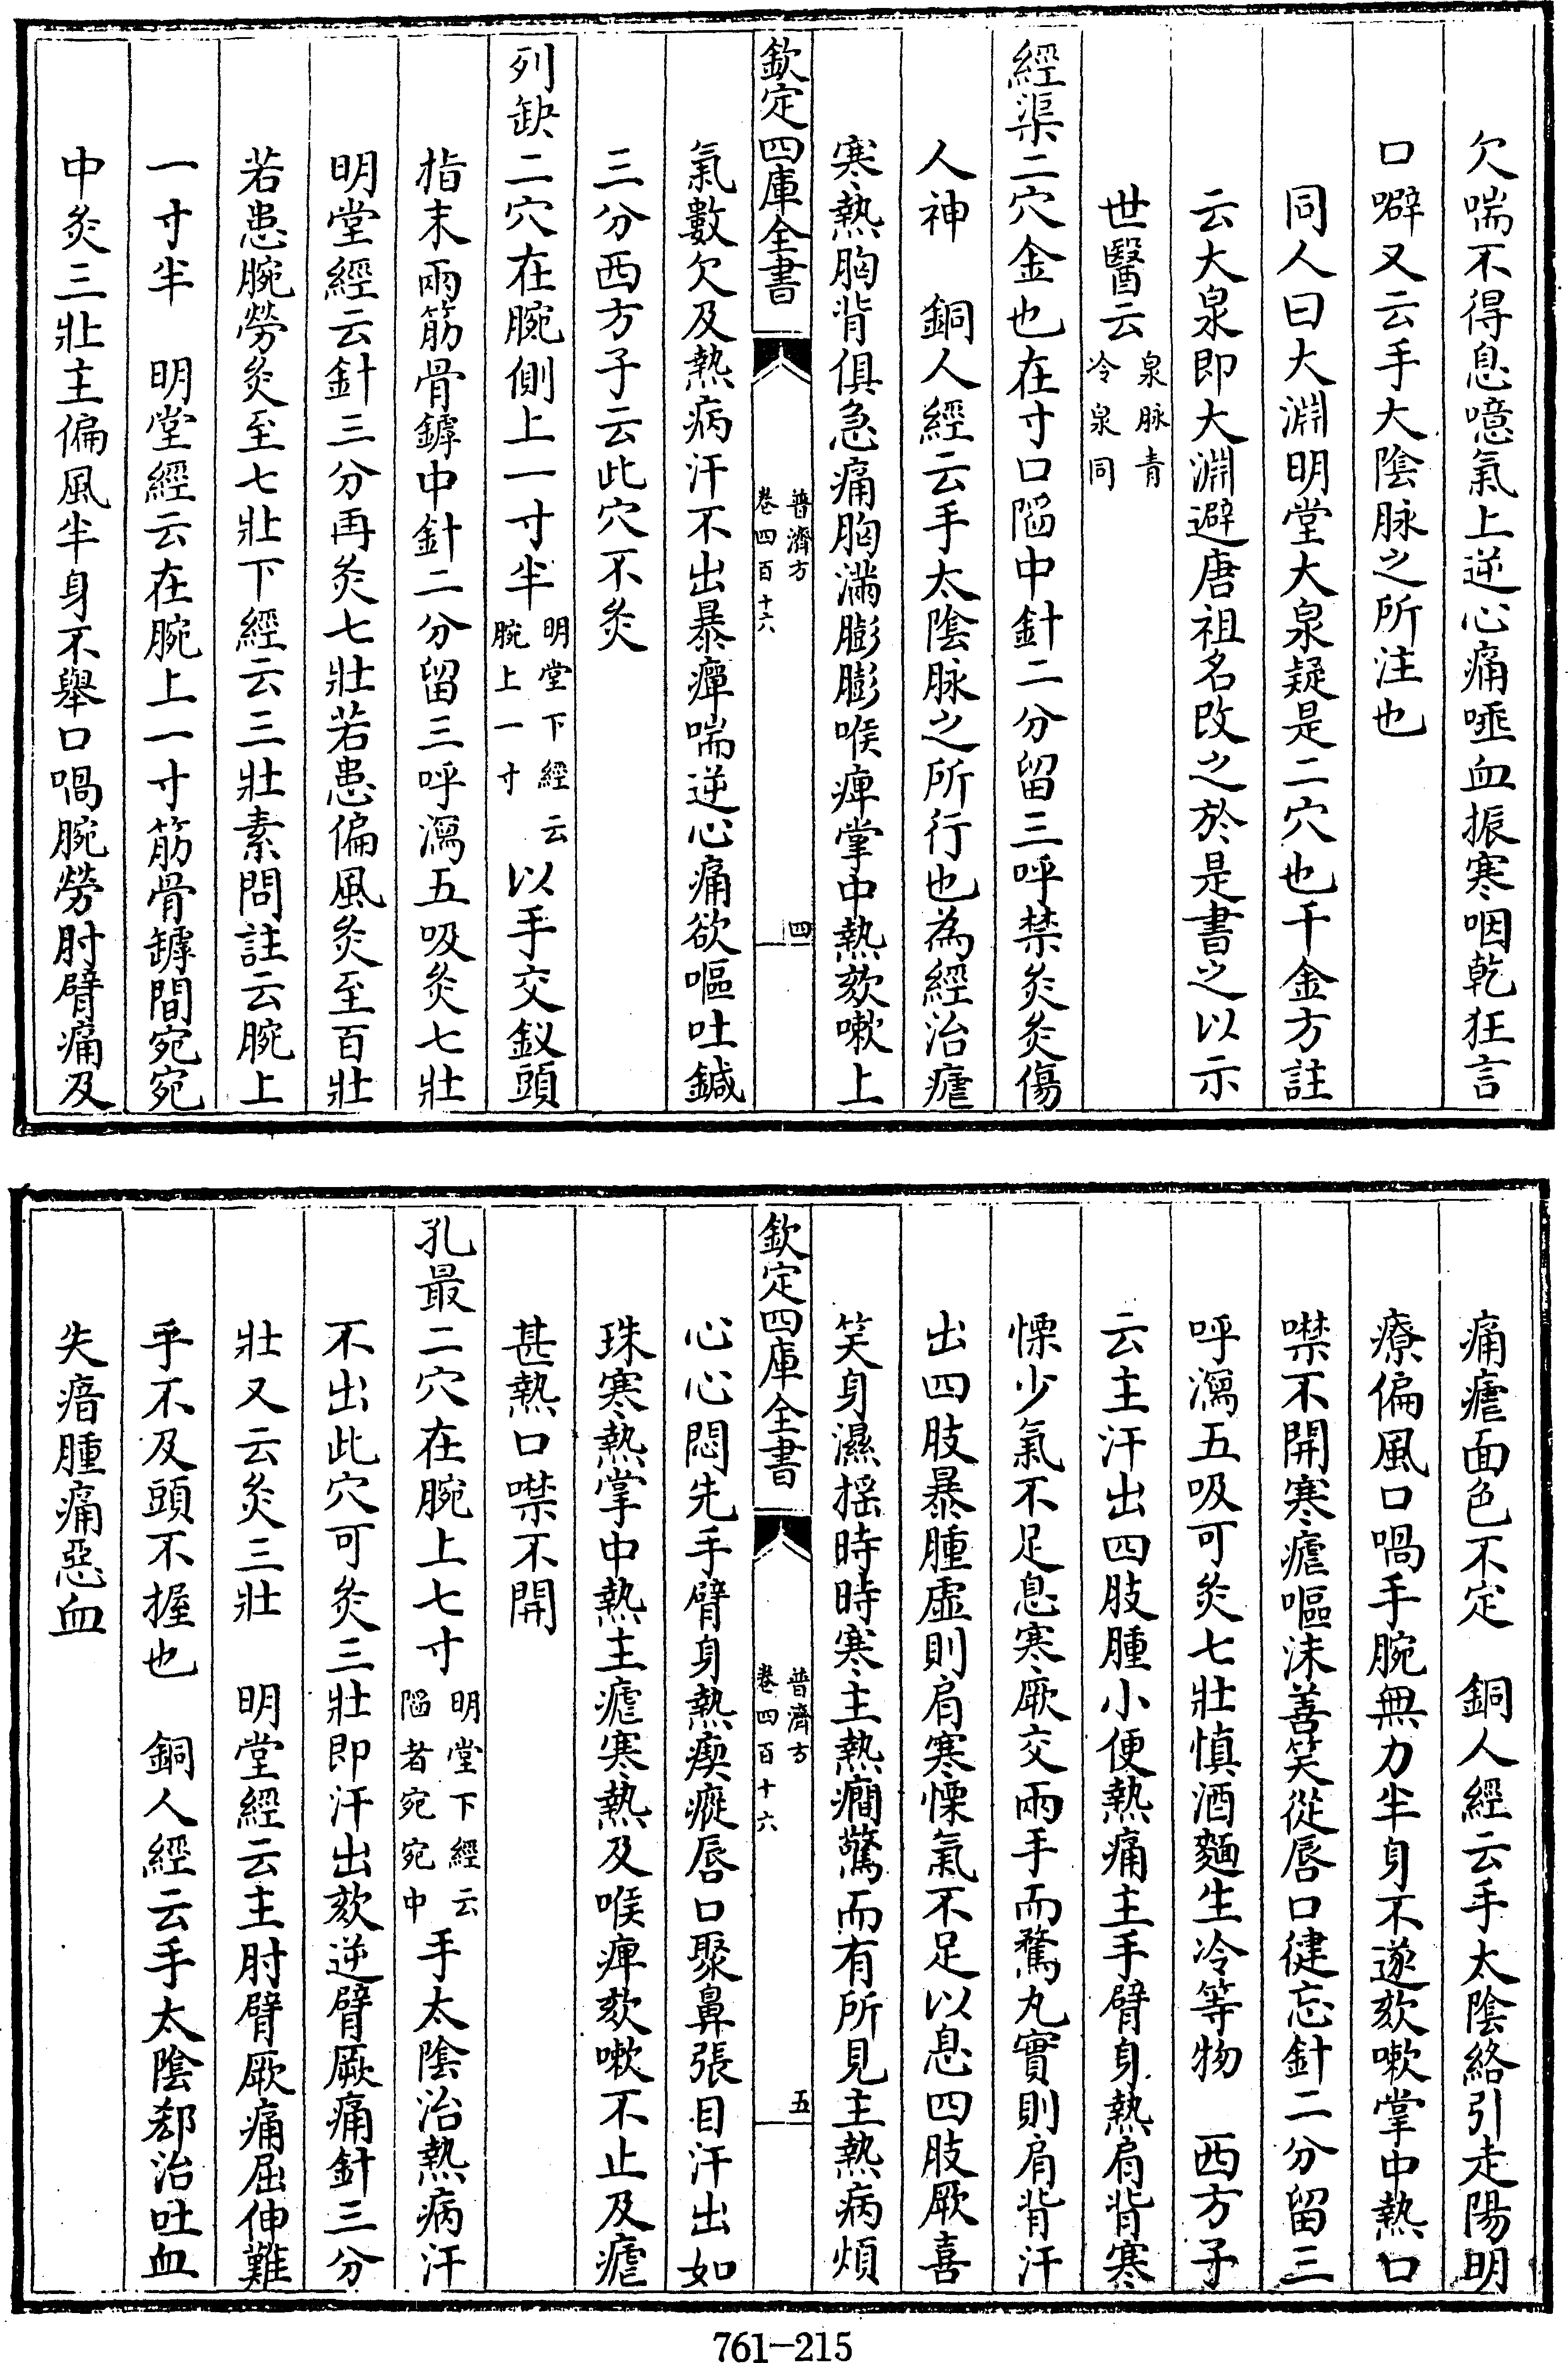 欠喘不得息噫氣上逆心痛唾血振寒咽乾狂言
口噼又云手大陰脉之所注也
同人曰大淵明堂大泉疑是二穴也千金方註
云大泉即大淵避唐祖名改之於是書之以示
世醫云泉脉青冷泉同
經渠二穴金也在寸口陷中針二分留三呼禁灸灸傷
人神　銅人經云手太陰脉之所行也為經治瘧
寒熱胸背俱急痛胸滿膨膨喉痺掌中熱欬嗽上
欽定四庫全書　普濟方卷四百十六　四
氣數欠及熱病汗不出暴癉喘逆心痛欲嘔吐鍼
三分西方子云此穴不灸
列缺二穴在腕側上一寸半明堂下經云腕上一寸以手交釵頭
指末兩筋骨罅中針二分留三呼瀉五吸灸七壯
明堂經云針三分再灸七壯若患偏風灸至百壯
若患腕勞灸至七壯下經云三壯素問註云腕上
一寸半　明堂經云在腕上一寸筋骨罅間宛宛
中灸三壯主偏風半身不舉口喎腕勞肘臂痛及
痛瘧面色不定　銅人經云手太陰絡引走陽明
療偏風口喎手腕無力半身不遂欬嗽掌中熱口
噤不開寒瘧嘔沫善笑從唇口健忘針二分留三
呼瀉五吸可灸七壯慎酒麵生冷等物　西方子
云主汗出四肢腫小便熱痛主手臂身熱肩背寒
慄少氣不足息寒厥交兩手而騖丸實則肩背汗
出四肢暴腫虛則肩寒慄氣不足以息四肢厥喜
笑身濕摇時時寒主熱癇驚而有所見主熱病煩
欽定四庫全書　普濟方卷四百十六　五
心心悶先手臂身熱瘈瘲唇口聚鼻張目汗出如
珠寒熱掌中熱主瘧寒熱及喉痺欬嗽不止及瘧
甚熱口噤不開
孔最二穴在腕上七寸明堂下經云陷者宛宛中手太陰治熱病汗
不出此穴可灸三壯即汗出欬逆臂厥痛針三分
壯又云灸三壯　明堂經云主肘臂厥痛屈伸難
手不及頭不握也　銅人經云手太陰郄治吐血
失瘖腫痛惡血
761-215